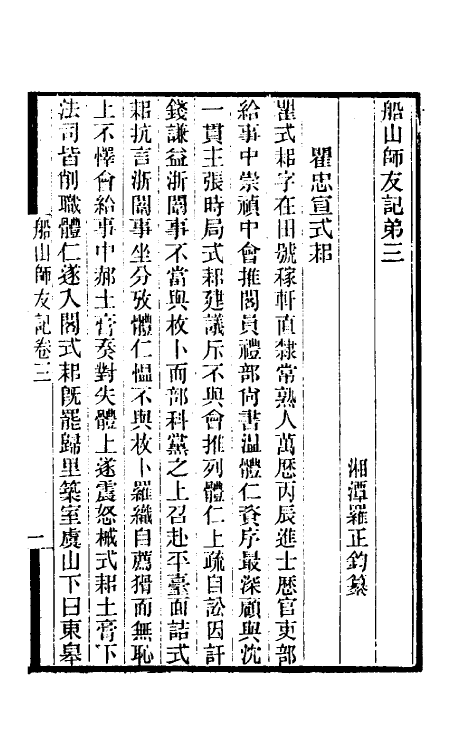 船山師友記弟三
湘潭羅正鈞纂
瞿忠宣式耜
瞿式耜字在田號稼軒直隸常熟人萬歷丙辰進士歷官吏部
給事中崇禎中會推閣員禮部尙書溫體仁資序最深顧與沈
一貫主張時局式耜建議斥不與會推列體仁上疏自訟因訐
錢謙益浙闈事不當與枚卜而部科黨之上召赴平臺面詰式
耜抗言浙闈事坐分攷體仁慍不與枚卜羅織自薦猾而無恥
上不懌會給事中郝土膏奏對失體上遂震怒械式耜土膏下
法司皆削職體仁遂入閣式耜旣罷歸里築室虞山下曰東皋
船山師友記卷三
一